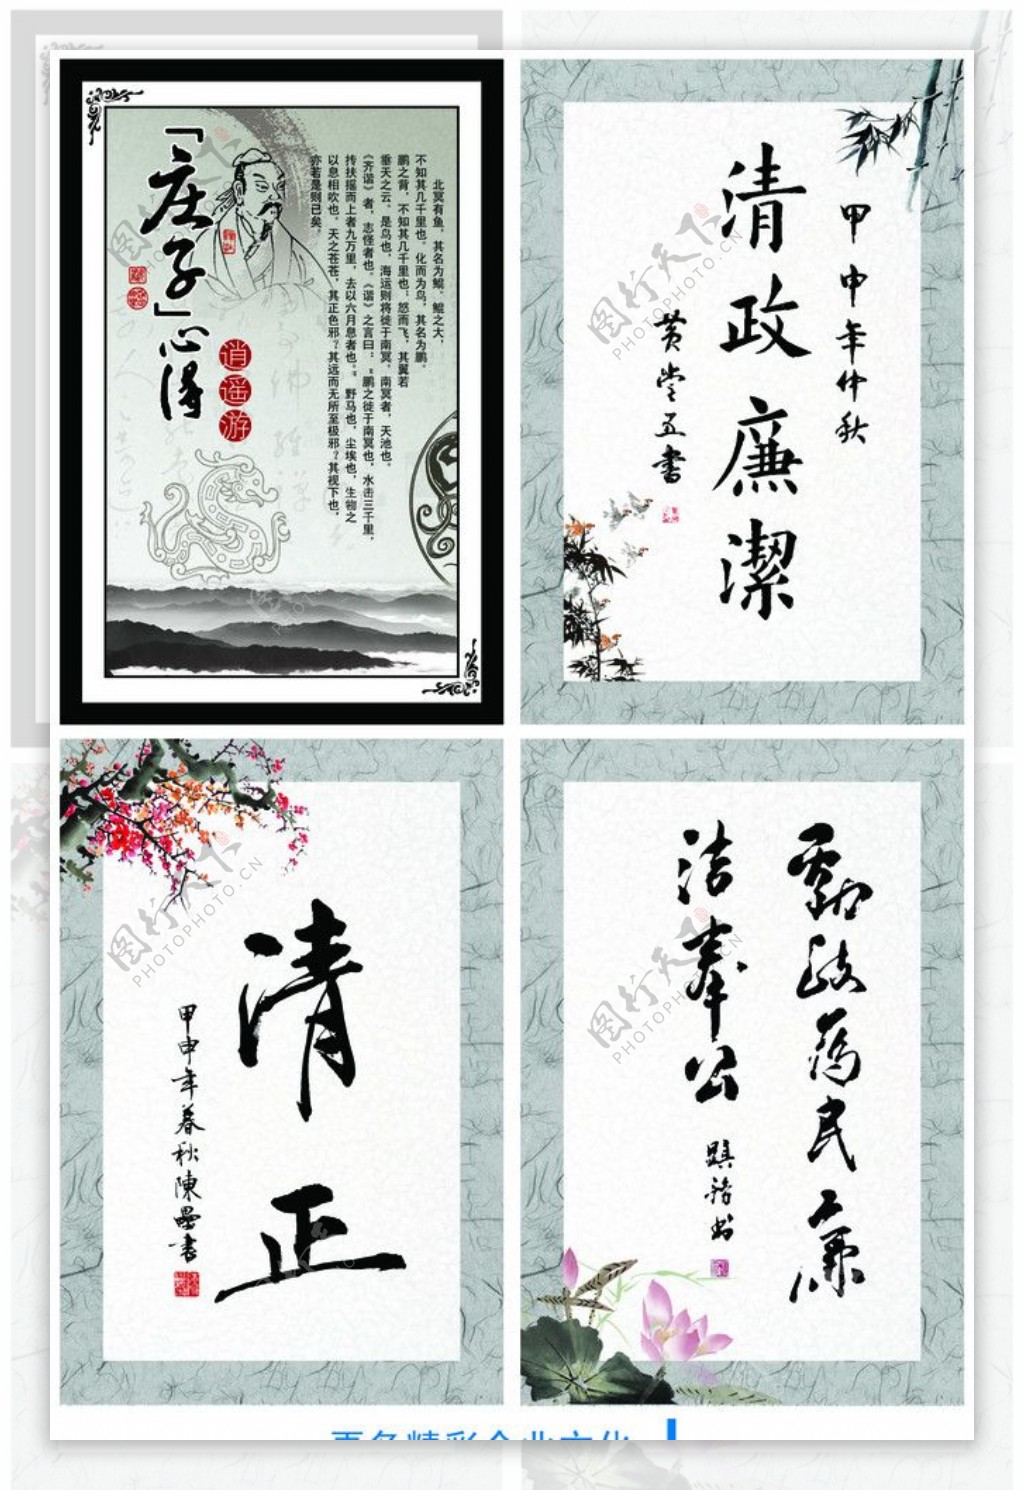 「庄子」心得
逍遥游
北冥有鱼，其名为鲲。鲲之大，
不知其几千里也。化而为鸟，其名为鹏。
鹏之背，不知其几千里也；怒而飞，其翼若
垂天之云。是鸟也，海运则将徙于南冥。南冥者，天池也。
《齐谐》者，志怪者也。《谐》之言曰：“鹏之徙于南冥也，水击三千里，
抟扶摇而上者九万里，去以六月息者也。”野马也，尘埃也，生物之
以息相吹也。天之苍苍，其正色邪？其远而无所至极邪？其视下也，
亦若是则已矣。
甲申年仲秋
清政廉潔
黄堂五書
清正
甲申年春秋陳墨書
勤政为民廉
洁奉公
图行天下
PHOTOPHOTO.CN